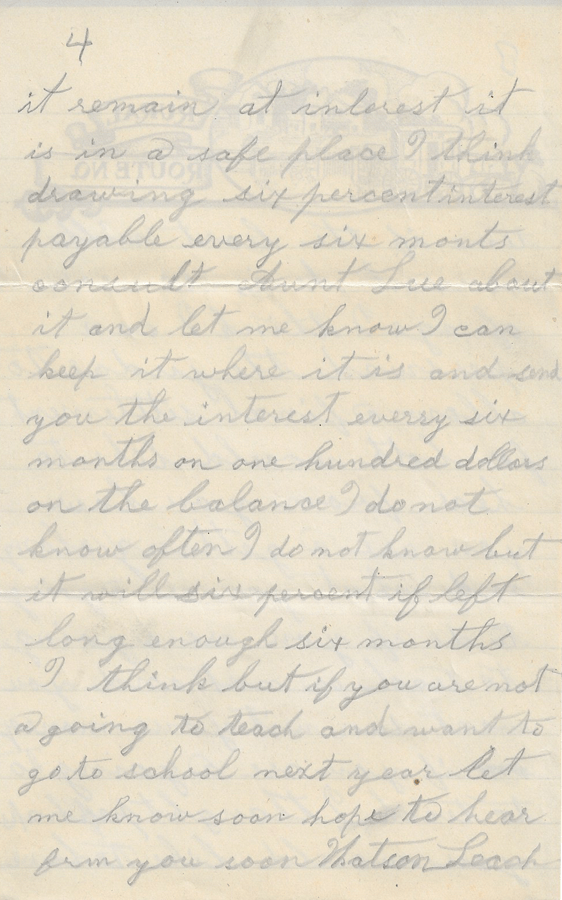 4
it remain at interest it
is in a safe place I think
drawing six percent interest
payable every six monts
consult Aunt Lue about
it and let me know I can
keep it where it is and send
you the interest everry six
months on one hundred dollars
on the balance I do not
know often I do not know but
it will six percent if left
long enough six months
I think but if you are not
a going to teach and want to
go to school next year let
me know soon hope to hear
frm you soon Watson Leach
ROUTE NO.